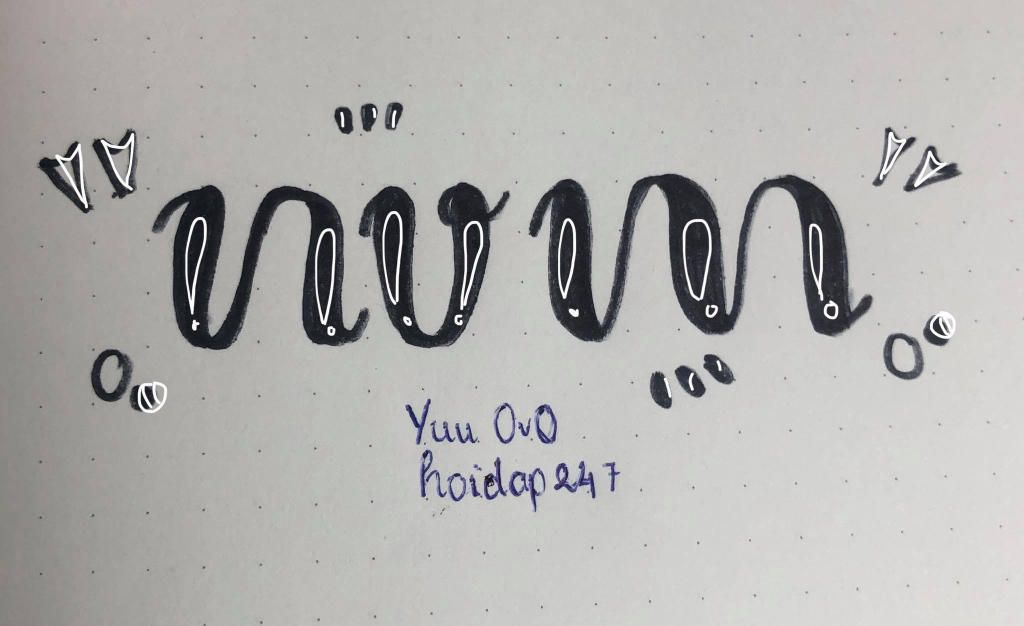 nvm
Yuu OvO
hoidap247